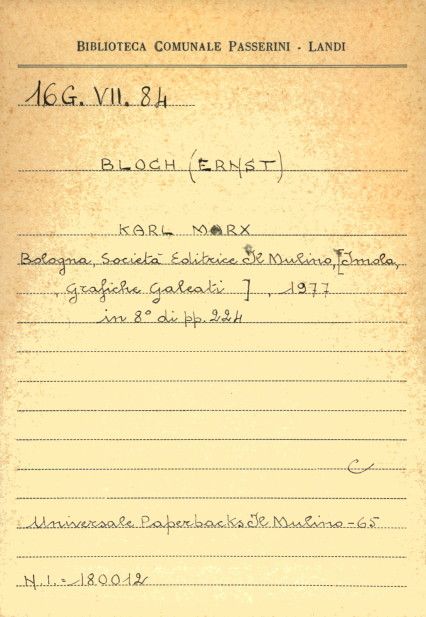 BIBLIOTECA COMUNALE PASSERINI - LANDI
16 G. VII. 84
BLOCH (ERNST)
KARL MARX
Bologna, Società Editrice Il Mulino, [Imola,
Grafiche Galeati ] , 1977
in 8° di pp. 224
C
Universale Paperbacks Il Mulino - 65
N.I. = 180012